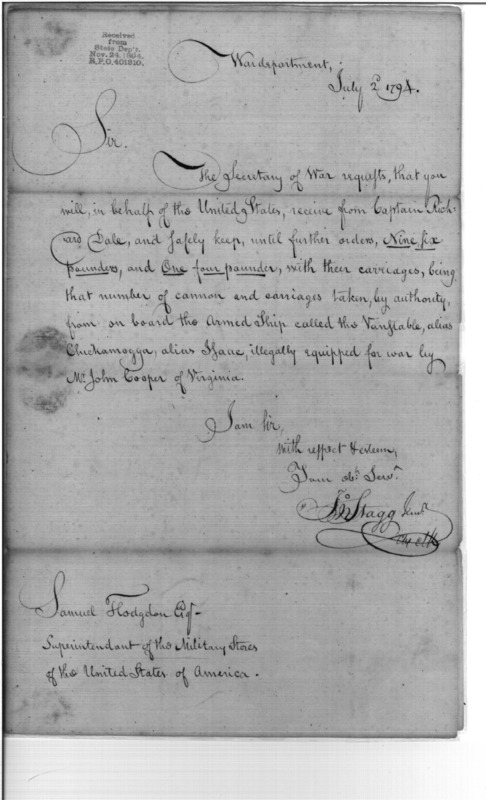 Received
from
State Dep't.
Nov. 24, 1894.
R.P.O. 401810.
War department,
July 2d 1794.
Sir.
The Secretary of War requests, that you
will, in behalf of the United States, receive from Captain Rich-
ard Dale, and safely keep, until further orders, Nine six
pounders, and One four pounder, with their carriages, being
that number of cannon and carriages taken, by authority,
from on board the Armed Ship called the Vanstable, alias
Chickamogga, alias Isaac, illegally equipped for war by
Mr. John Cooper of Virginia.
I am Sir,
with respect & esteem,
Your ob. Serv.
Jno Stagg Junr
Samuel Hodgdon Esqr
Superintendant of the Military Stores
of the United States of America.